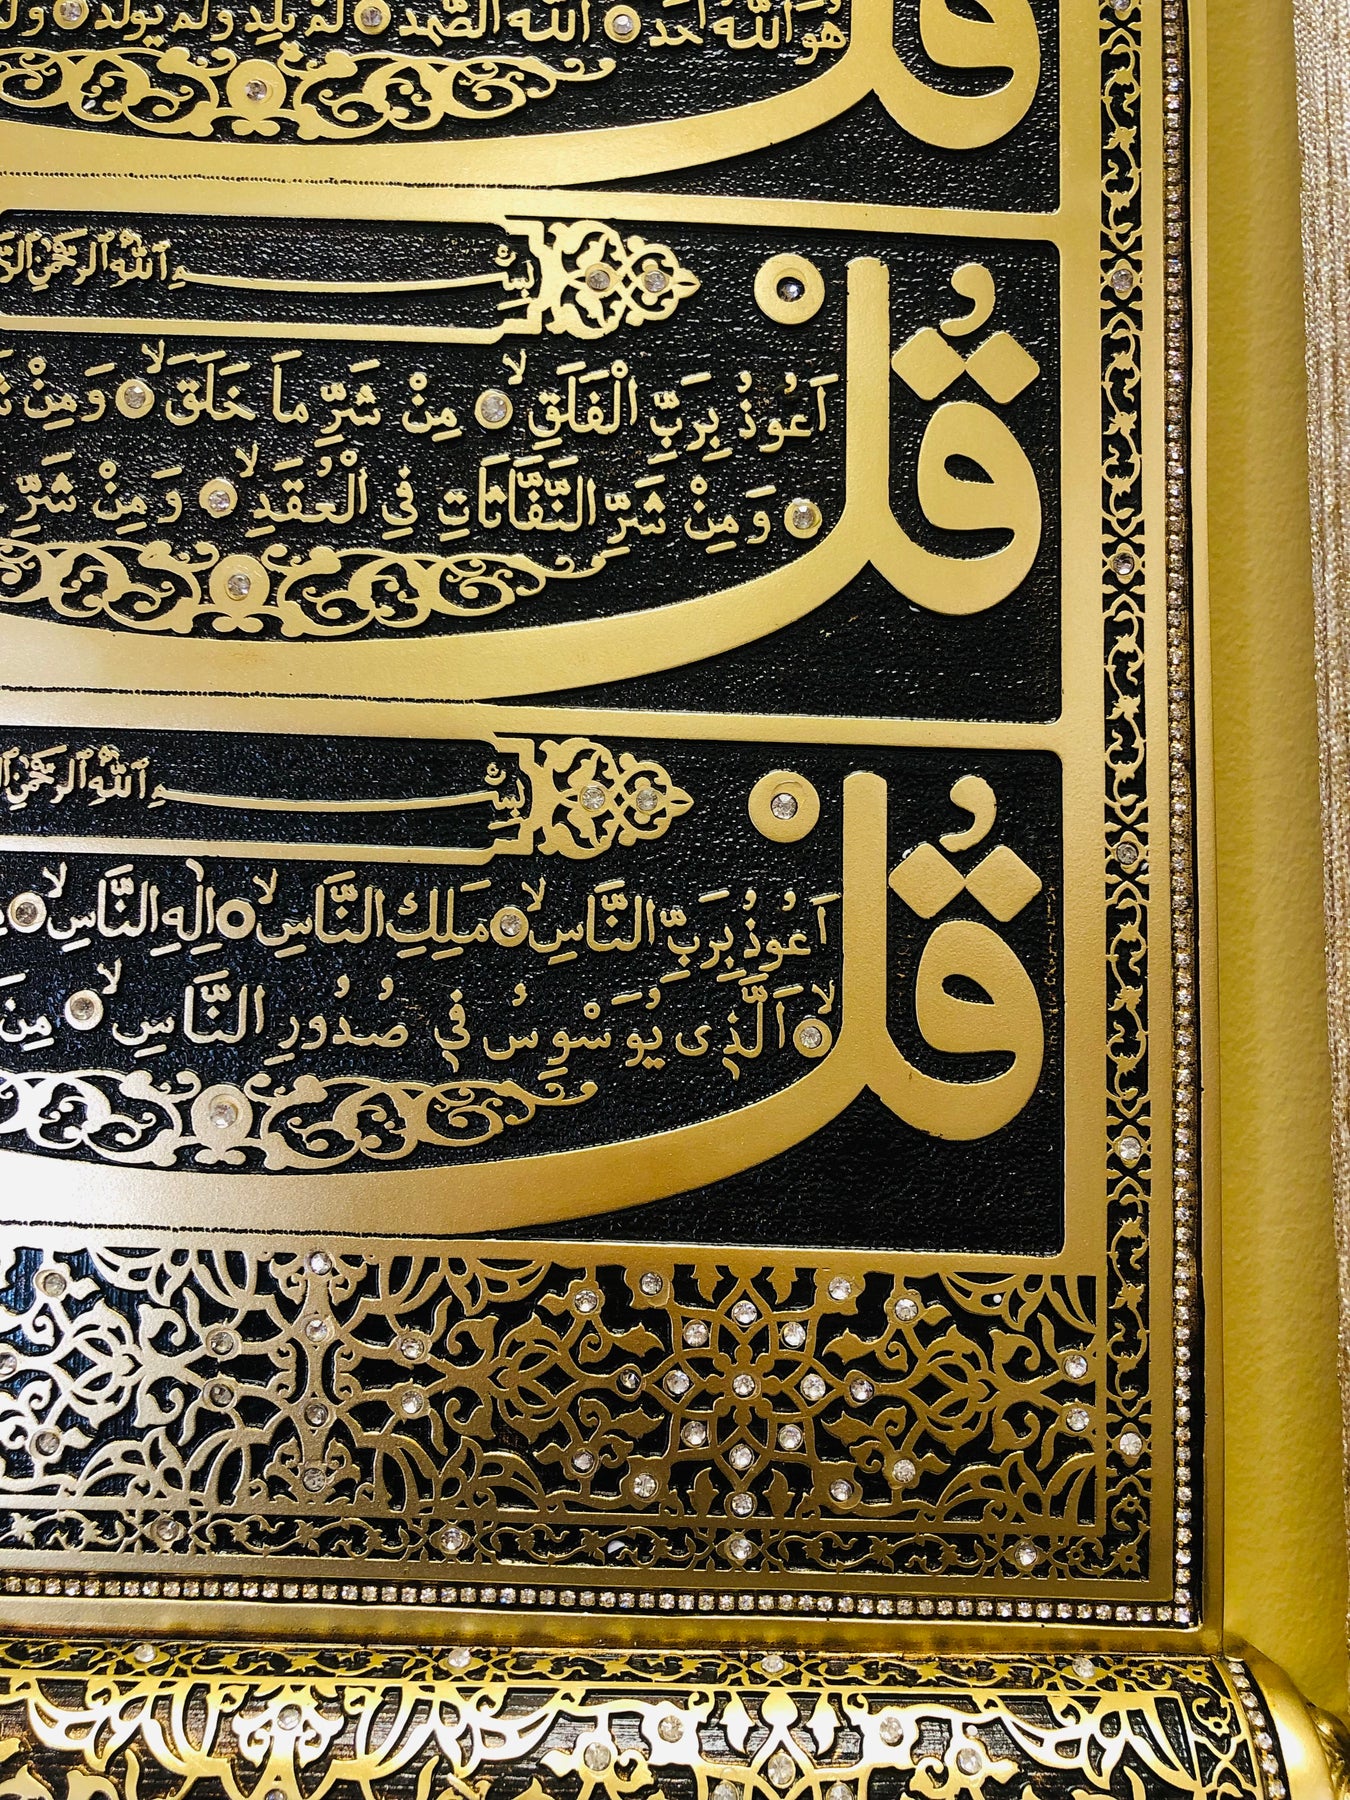 قل
هُوَ ٱللّٰهُ اَحَدٌ ٱللّٰهُ الصَّمَدُ لَمْ يَلِدْ وَلَمْ يُولَدْ
بِسْمِ ٱللّٰهِ ٱلرَّحْمٰنِ
قُلْ
اَعُوذُ بِرَبِّ الْفَلَقِ ۙ مِنْ شَرِّ مَا خَلَقَ ۙ وَمِنْ
وَمِنْ شَرِّ النَّفَّاثَاتِ فِي الْعُقَدِ ۙ وَمِنْ شَرِّ
بِسْمِ ٱللّٰهِ ٱلرَّحْمٰنِ
قُلْ
اَعُوذُ بِرَبِّ النَّاسِ ۙ مَلِكِ النَّاسِ ۙ اِلٰهِ النَّاسِ ۙ
اَلَّذِى يُوَسْوِسُ فِي صُدُورِ النَّاسِ ۙ مِنَ